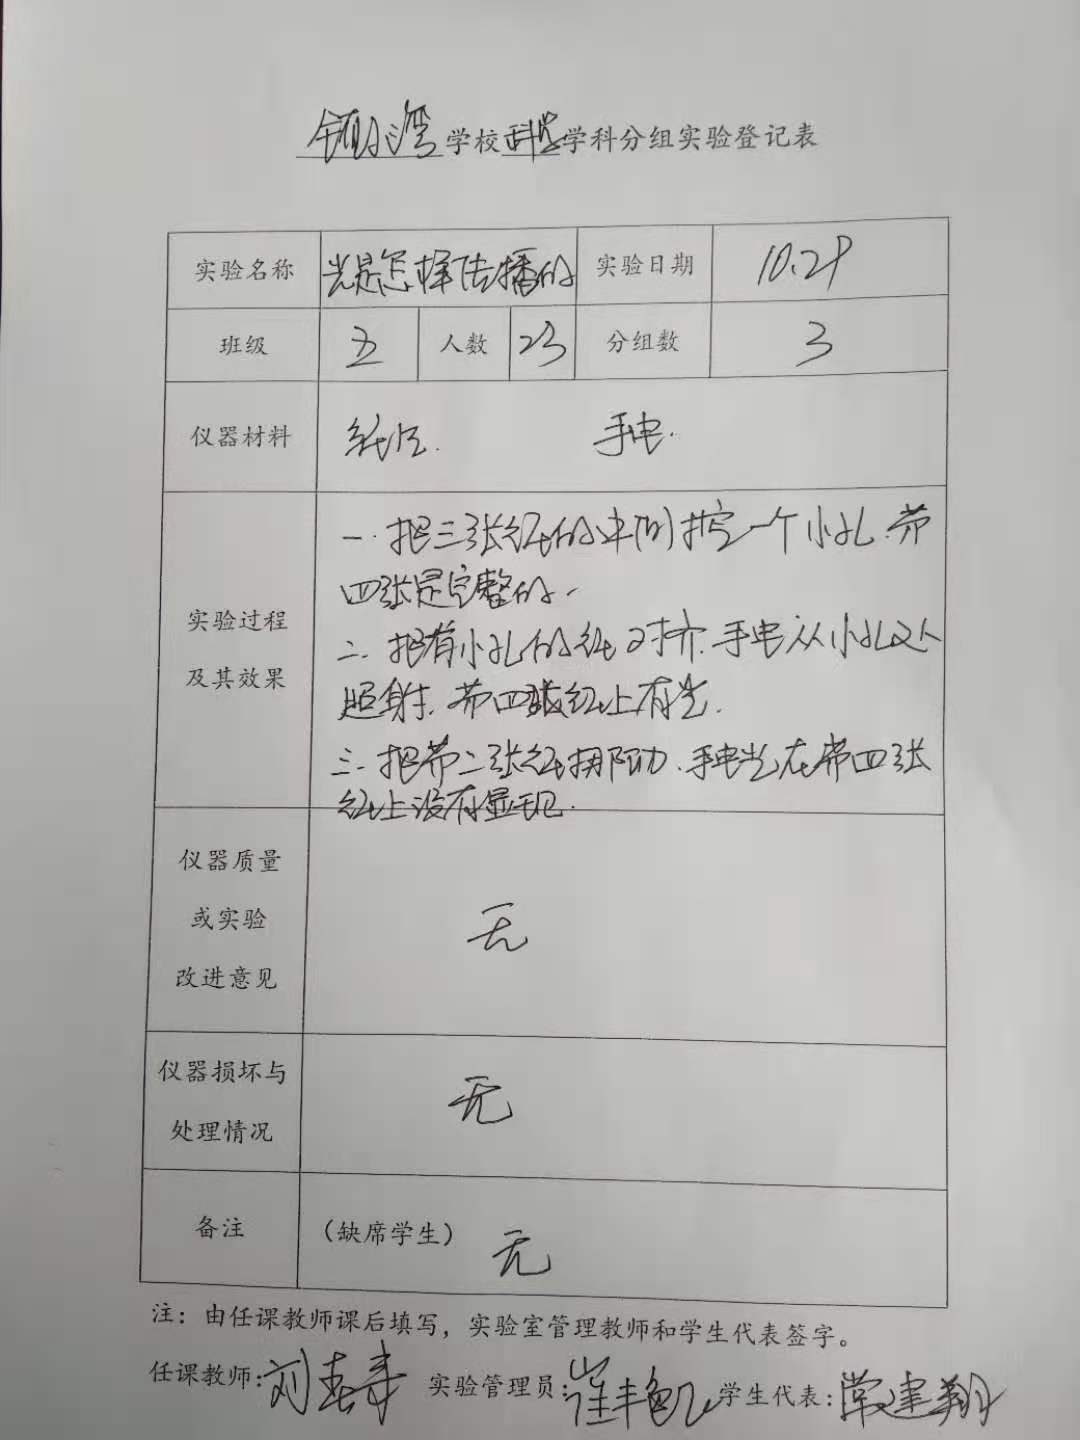 湾学校科学学科分组实验登记表
实验名称 光是怎样传播的 实验日期 10.29
班级 五 人数 23 分组数 3
仪器材料 纸片. 手电.
实验过程
及其效果
一.把三张纸的中间打一个小孔.第
四张是完整的.
二.把有小孔的纸对齐.手电从小孔
照射.第四张纸上有光.
三.把第二张纸挪动.手电光在第四张
纸上没有显现.
仪器质量
或实验
改进意见
无
仪器损坏与
处理情况
无
备注 (缺席学生) 无
注：由任课教师课后填写，实验室管理教师和学生代表签字。
任课教师:刘春寿 实验管理员:崔丰 学生代表:常建翔